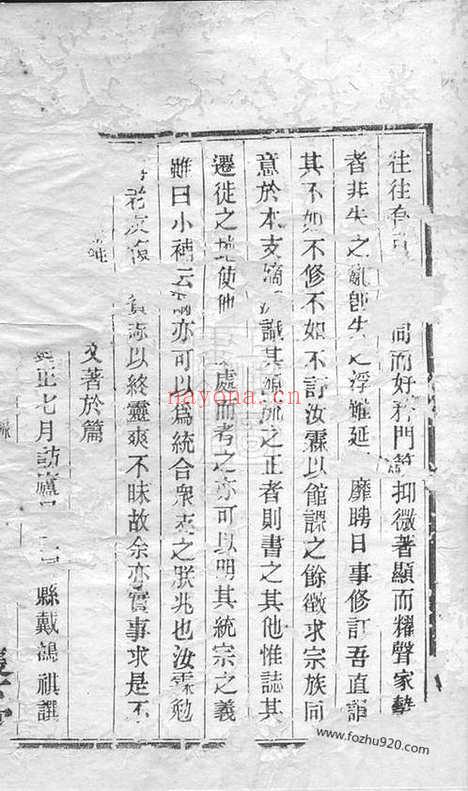 往往有 同而好矜門第抑微著顯而耀聲家藝
者非失之亂卽失之浮雖延 靡聘日事修訂吾直謂
其不如不修不如不訂汝霖以館課之餘徵求宗族同
意於本支嫡 識其源流之正者則書之其他惟誌其
遷徙之地使他 處而考之亦可以明其統宗之義
雖曰小補云爾亦可以爲統合衆志之朕兆也汝霖勉
以終靈爽不昧故余亦實事求是不
文著於篇
正七月訪廬 縣戴鴻祺譔
nayona.cn
www.fozhu920.com